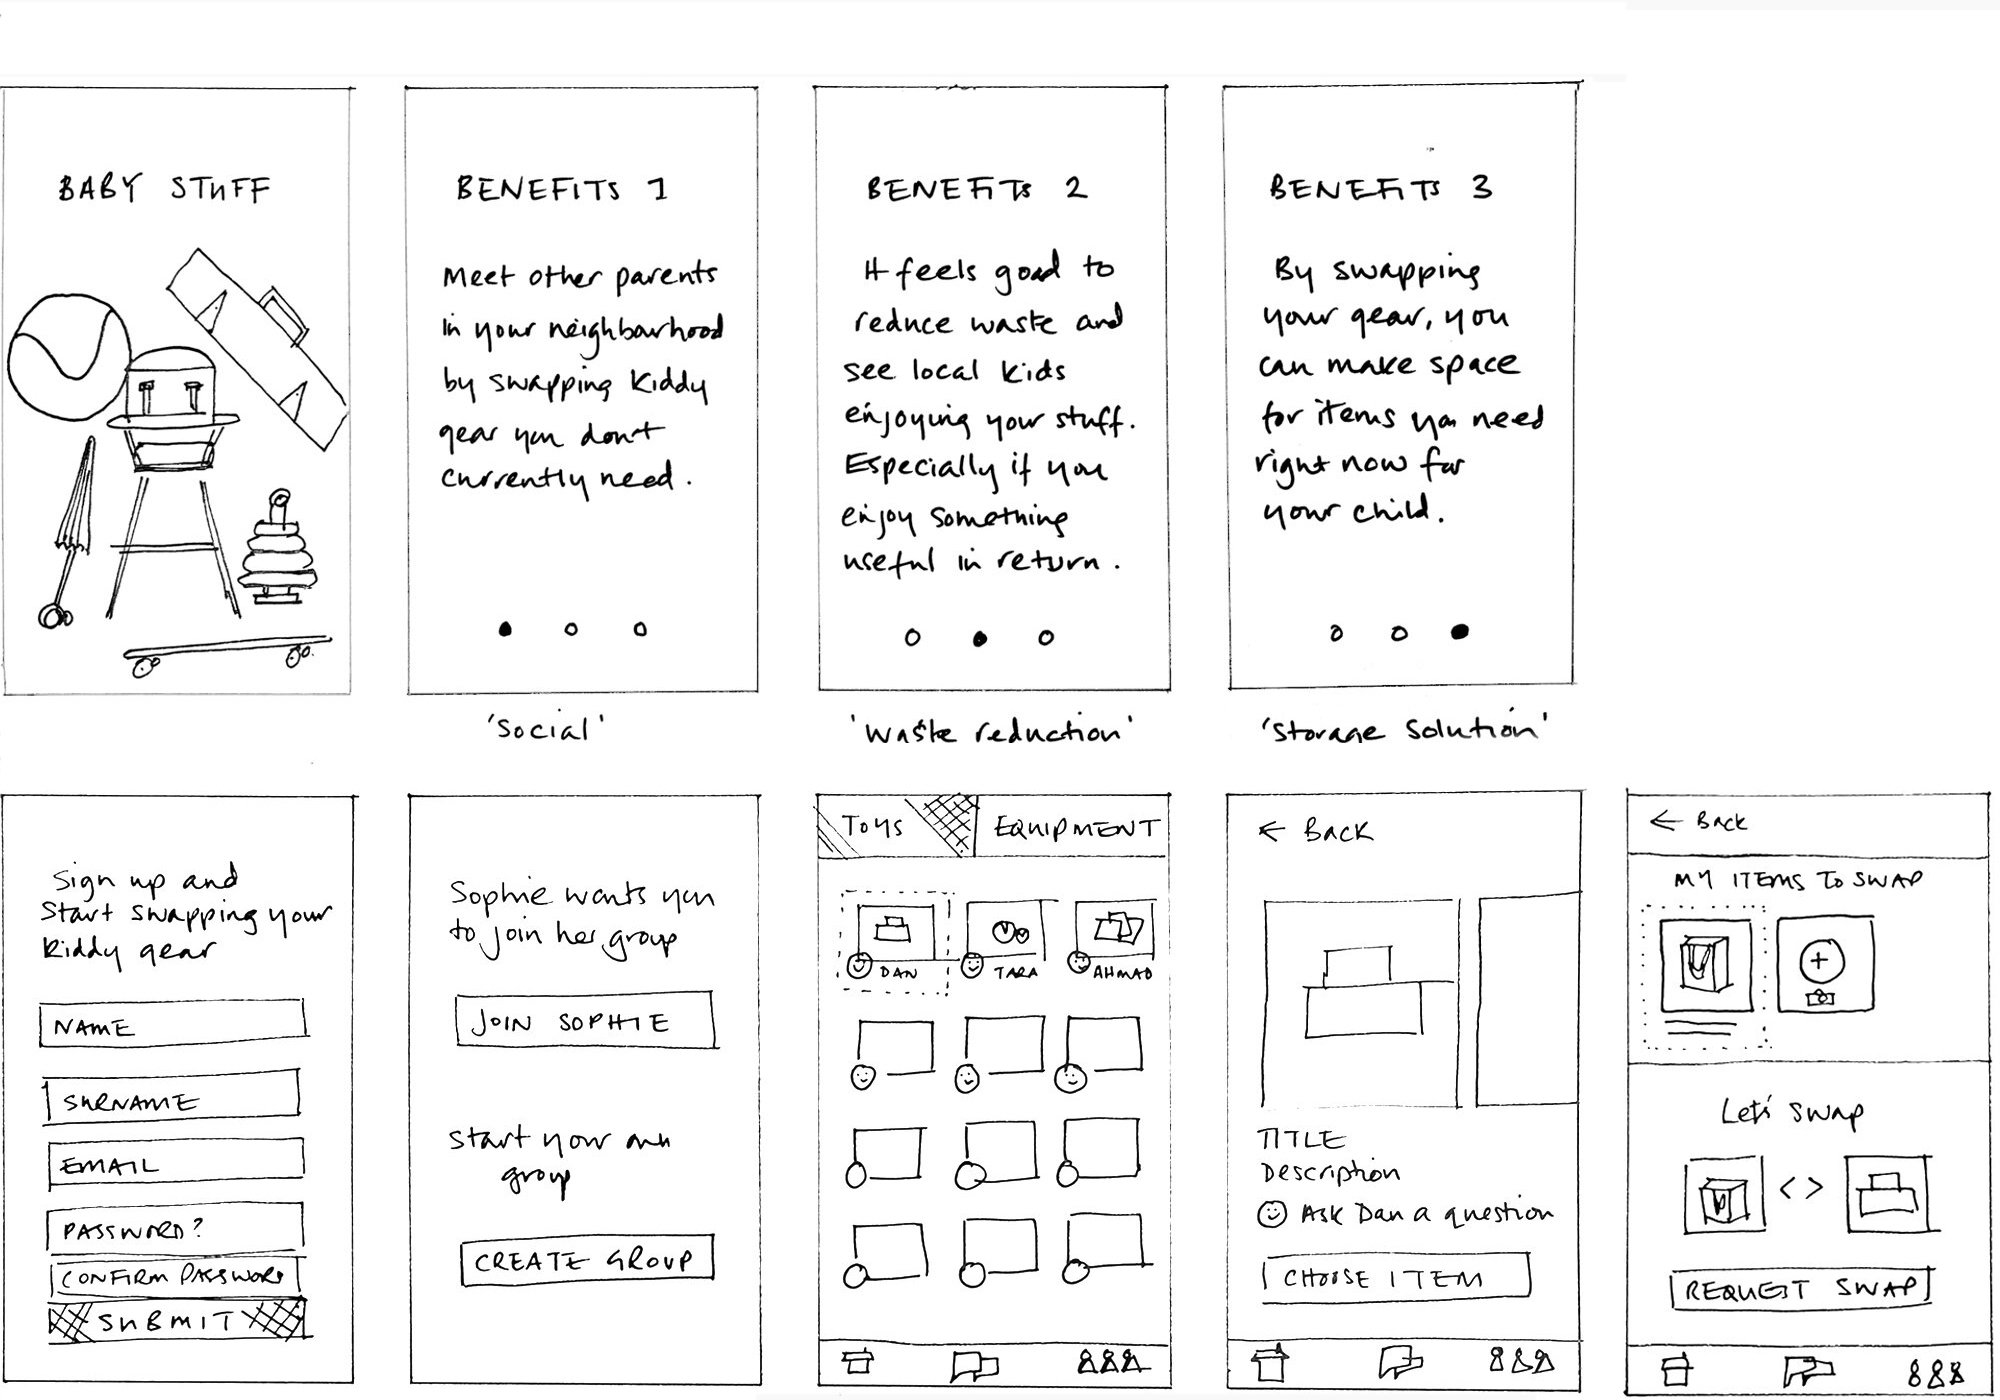 BABY STUFF
BENEFITS 1
Meet other parents
in your neighbourhood
by swapping kiddy
gear you don't
currently need.
'Social'
BENEFITS 2
It feels good to
reduce waste and
see local kids
enjoying your stuff.
Especially if you
enjoy something
useful in return.
'Waste reduction'
BENEFITS 3
By swapping
your gear, you
can make space
for items you need
right now for
your child.
'Storage Solution'
Sign up and
Start swapping your
kiddy gear
NAME
SURNAME
EMAIL
PASSWORD?
CONFIRM PASSWORD
SUBMIT
Sophie wants you
to join her group
JOIN SOPHIE
Start your own
group
CREATE GROUP
TOYS
EQUIPMENT
DAN
TARA
AHMAD
← BACK
TITLE
Description
Ask Dan a question
CHOOSE ITEM
← Back
MY ITEMS TO SWAP
Let's swap
< >
REQUEST SWAP